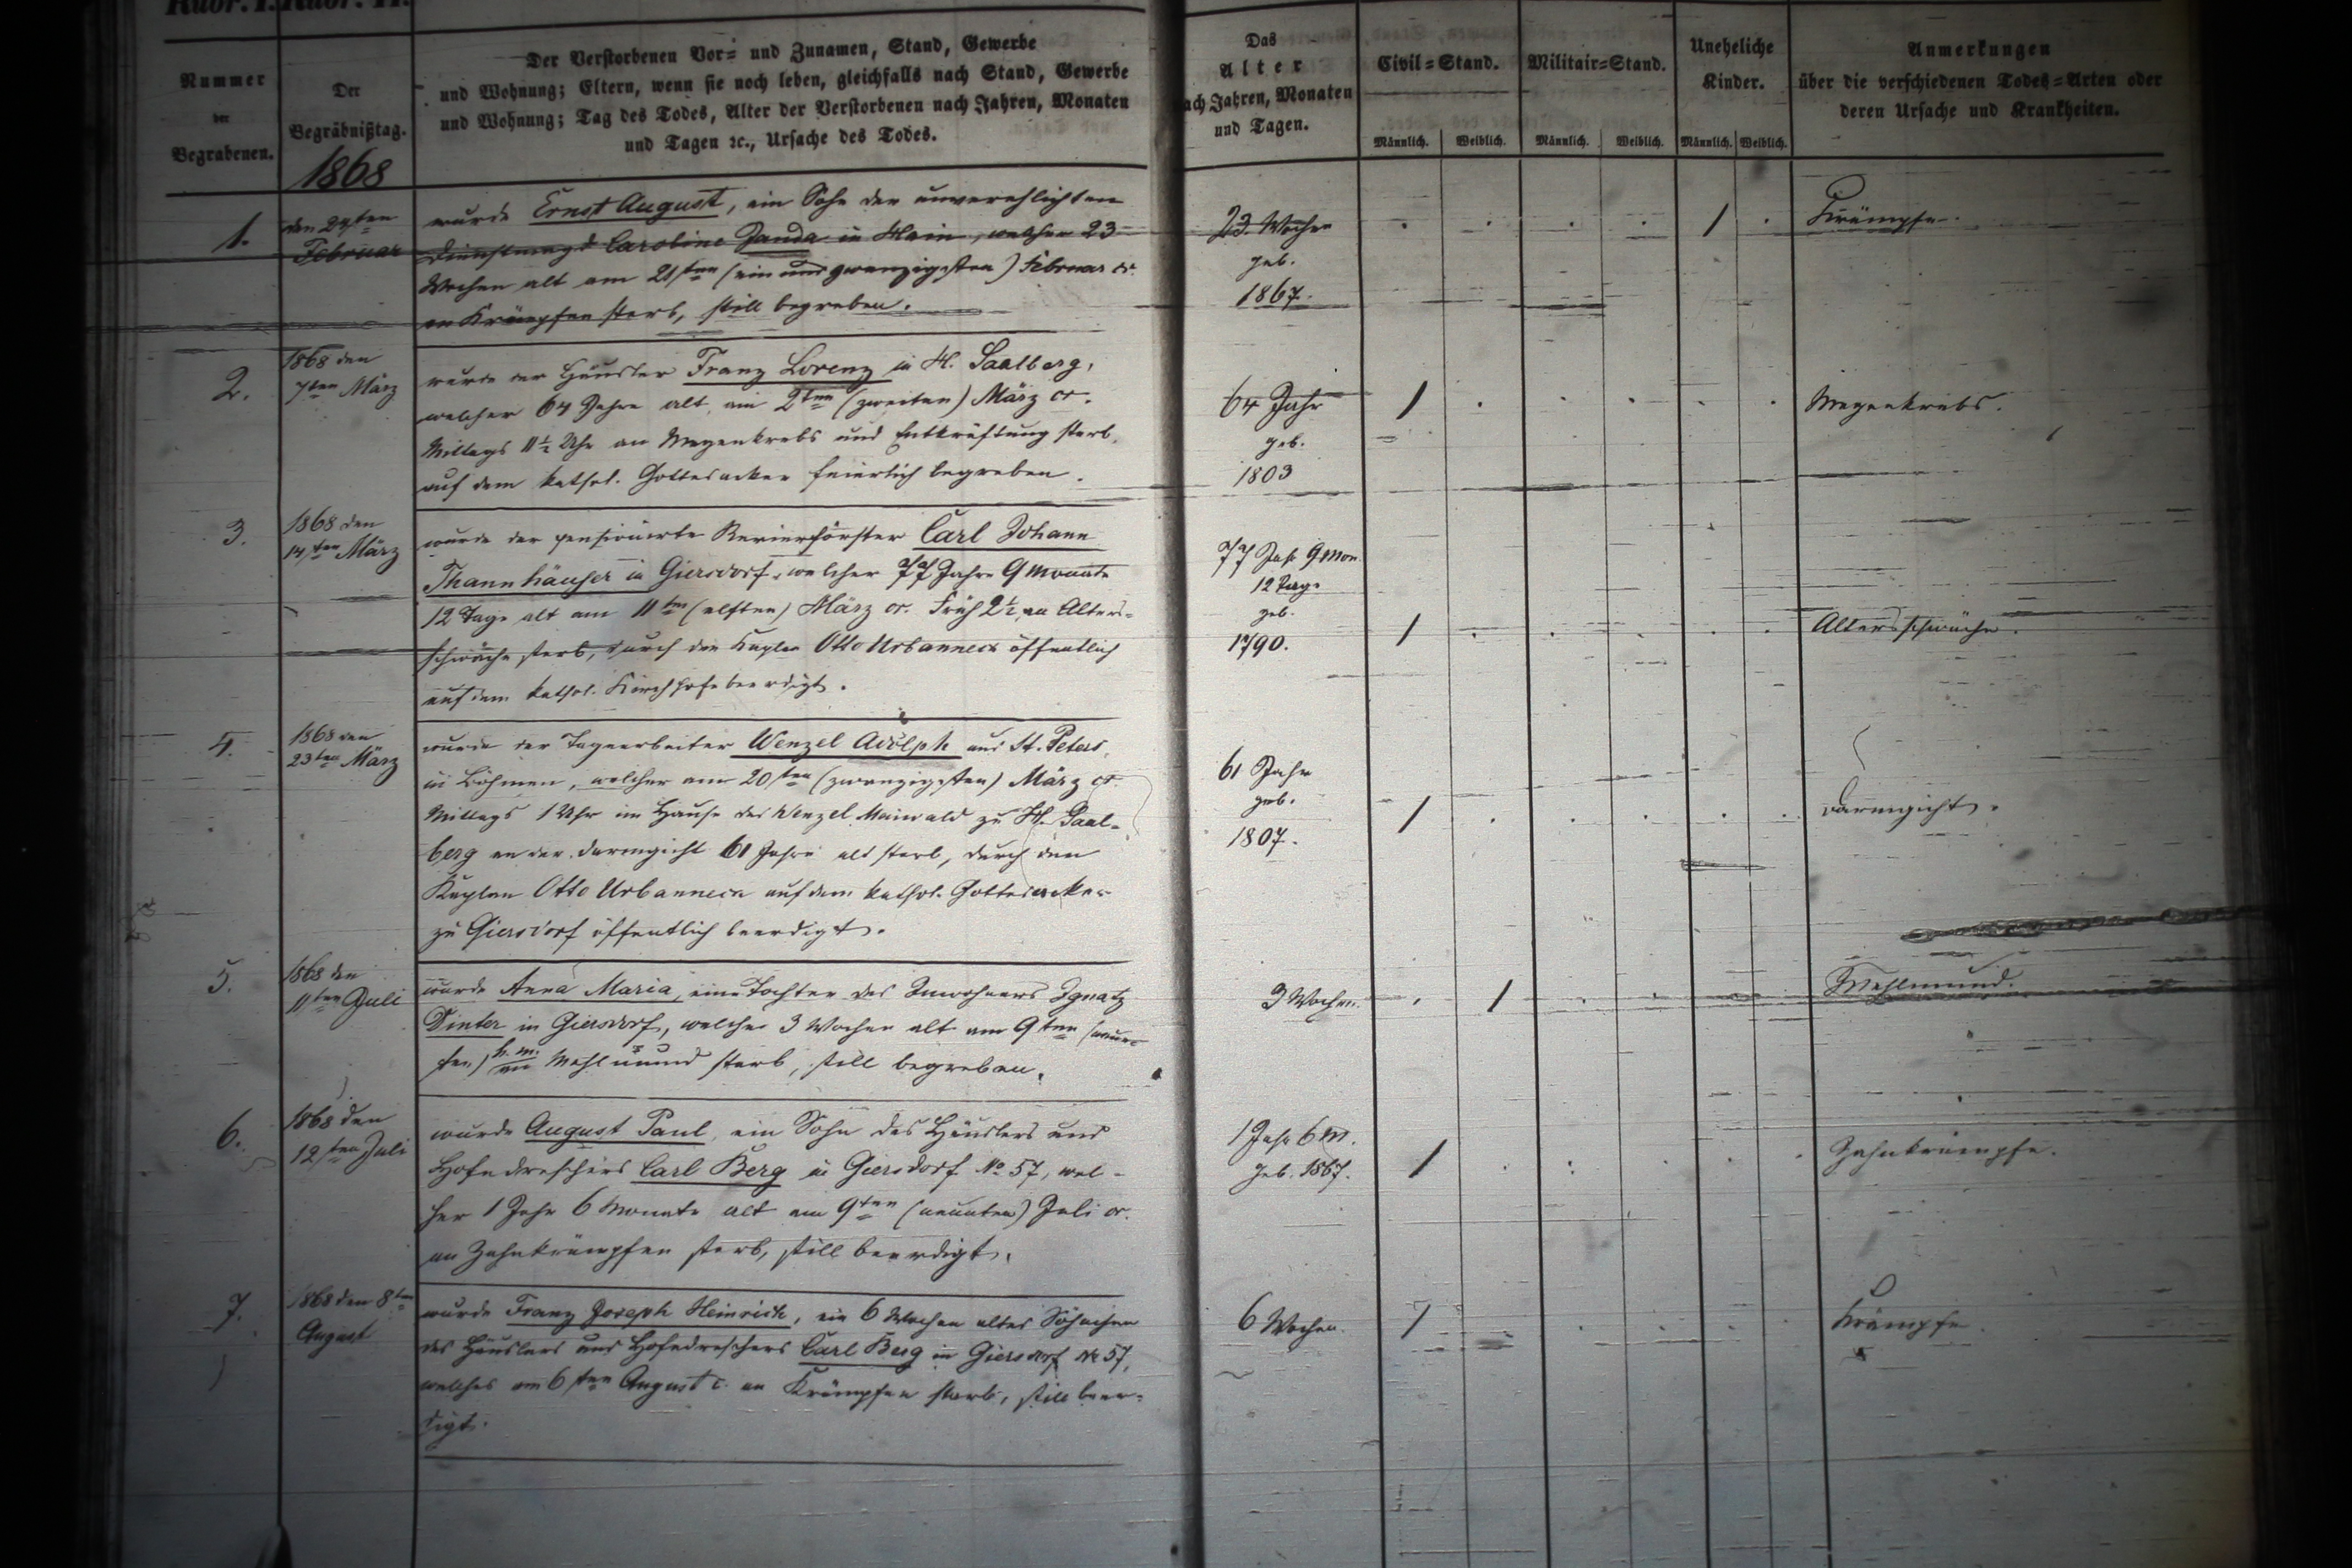 Nummer
der
Begrabenen.
Der
Begräbnißtag.
1868
Der Verstorbenen Vor= und Zunamen, Stand, Gewerbe
und Wohnung; Eltern, wenn sie noch leben, gleichfalls nach Stand, Gewerbe
und Wohnung; Tag des Todes, Alter der Verstorbenen nach Jahren, Monaten
und Tagen ꝛc., Ursache des Todes.
Das
Alter
nach Jahren, Monaten
und Tagen.
Civil=Stand.
Männlich. Weiblich.
Militair=Stand.
Männlich. Weiblich.
Uneheliche
Kinder.
Männlich. Weiblich.
Anmerkungen
über die verschiedenen Todes=Arten oder
deren Ursache und Krankheiten.
1.
den 24ten
Februar
wurde Ernst August, ein Sohn der unverehlichten
Dienstmagd Caroline Janda in Hain, welcher 23
Wochen alt am 21sten (ein und zwanzigsten) Februar cr.
an Krämpfen starb, still begraben.
23 Wochen
geb.
1867.
1
Krämpfe.
2.
1868 den
7ten März
wurde der Häusler Franz Lorenz in H. Saalberg,
welcher 64 Jahre alt, am 2ten (zweiten) März cr.
Mittags 11½ Uhr an Magenkrebs und Entkräftung starb,
auf dem kathol. Gottesacker feierlich begraben.
64 Jahr
geb.
1803
1
Magenkrebs.
3.
1868 den
14ten März
wurde der pensionirte Revierförster Carl Johann
Thannhäuser in Giersdorf, welcher 77 Jahre 9 Monate
12 Tage alt am 11ten (elften) März cr. Früh 2½ an Alters-
schwäche starb, durch den Kaplan Otto Urbanneck öffentlich
auf dem kathol. Kirchhofe beerdigt.
77 Jahr 9 Mon.
12 Tage
geb.
1790.
1
Altersschwäche.
4.
1868 den
23ten März
wurde der Tagearbeiter Wenzel Adolph aus St. Peters
in Böhmen, welcher am 20sten (zwanzigsten) März cr.
Mittags 1 Uhr im Hause des Wenzel Maiwald zu H. Saal-
berg an der Darmgicht 61 Jahre alt starb, durch den
Kaplan Otto Urbanneck auf dem kathol. Gottesacker
zu Giersdorf öffentlich beerdigt.
61 Jahr
geb.
1807.
1
Darmgicht.
5.
1868 den
11ten Juli
wurde Anna Maria, eine Tochter des Inwohners Ignatz
Dinter in Giersdorf, welche 3 Wochen alt am 9ten (neun-
ten) h. m. an Mehlmund starb, still begraben.
3 Wochen.
1
Mehlmund.
6.
1868 den
12ten Juli
wurde August Paul, ein Sohn des Häuslers und
Hofedreschers Carl Berg in Giersdorf No 57, wel-
cher 1 Jahr 6 Monate alt am 9ten (neunten) Juli cr.
an Zahnkrämpfen starb, still beerdigt.
1 Jahr 6 M.
geb. 1867.
1
Zahnkrämpfe.
7.
1868 den 8ten
August
wurde Franz Joseph Heinrich, ein 6 Wochen altes Söhnchen
des Häuslers und Hofedreschers Carl Berg in Giersdorf No 57,
welches am 6ten August c. an Krämpfen starb, still beer-
digt.
6 Wochen.
1
Krämpfe.